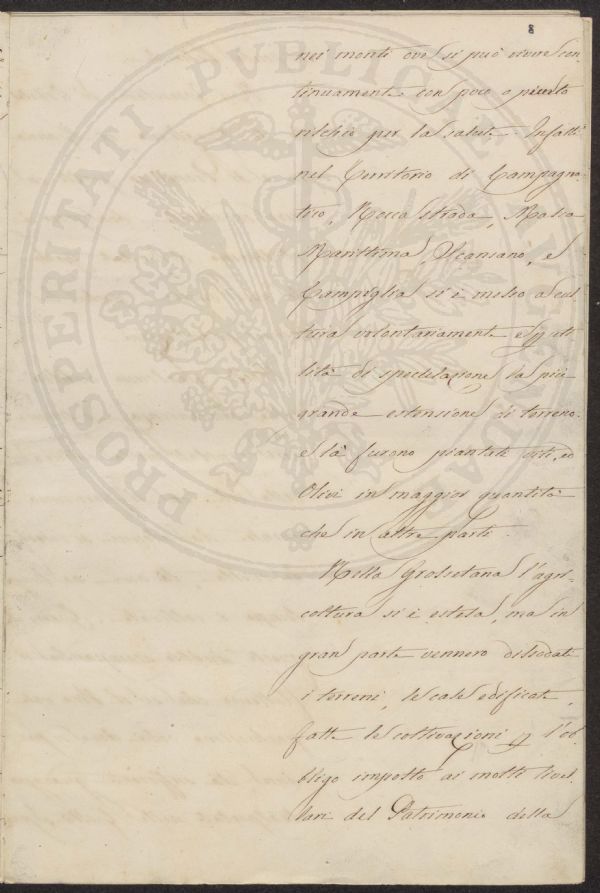 8
nei monti ove si può vivere con-
tinuamente con poco o piccolo
rischio per la salute. Infatti
nel Territorio di Campagna-
tico, Rocca strada, Massa
Marittima, Scansano, e
Campiglia si è messo a cul-
tura volontariamente e p uti-
lità di speculazione, la più
grande estensione di terreno.
e là furono piantati viti, ed
Olivi in maggior quantità
che in altre parti.
Nella Grossetana l'agri-
coltura si è estesa, ma in
gran parte vennero dissodati
i terreni, le case edificate,
fatte le coltivazioni p l'ob-
bligo imposto ai molti livel-
lari del Patrimonio della
PROSPERITATI PUBLICAE AUGENDAE